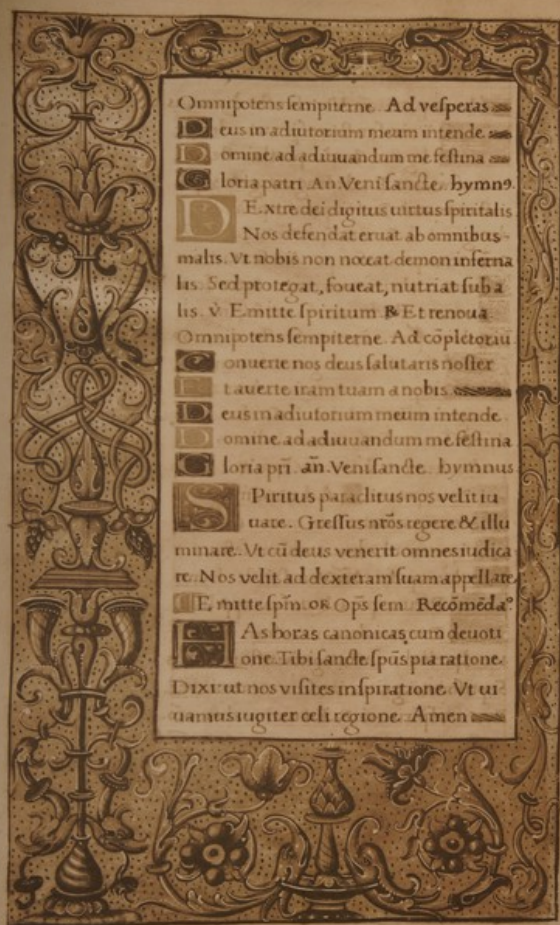 Omnipotens sempiterne. Ad vesperas
Deus in adiutorium meum intende.
Domine ad adiuuandum me festina
Gloria patri. An. Veni sancte. hymnꝰ.
DExtre dei digitus uirtus spiritalis
Nos defendat eruat ab omnibus
malis. Vt nobis non noceat demon inferna
lis. Sed protegat, foueat, nutriat sub a
lis. v̇. Emitte spiritum. ℞ Et renoua
Omnipotens sempiterne. Ad cōpletoriū
Conuerte nos deus salutaris noster
Et auerte iram tuam a nobis.
Deus in adiutorium meum intende
Domine ad adiuuandum me festina
Gloria pr̄i. an̄. Veni sancte. hymnus
SPiritus paraclitus nos velit iu
uare. Gressus nr̄os regere & illu
minare. Vt cū deus venerit omnes iudica
re. Nos velit ad dexteram suam appellare
Emitte sp̄m. or̄. Op̄s sem. Recōmēda°.
HAs horas canonicas cum deuoti
one. Tibi sancte sp̄us pia ratione.
Dixi ut nos visites inspiratione. Vt ui
uamus iugiter celi regione. Amen